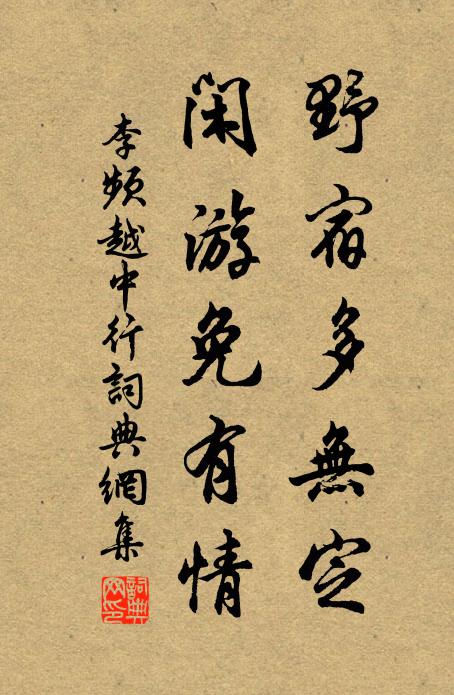 野宿多無定
閑游免有情
李頻越中行詞典網集
詞典网印